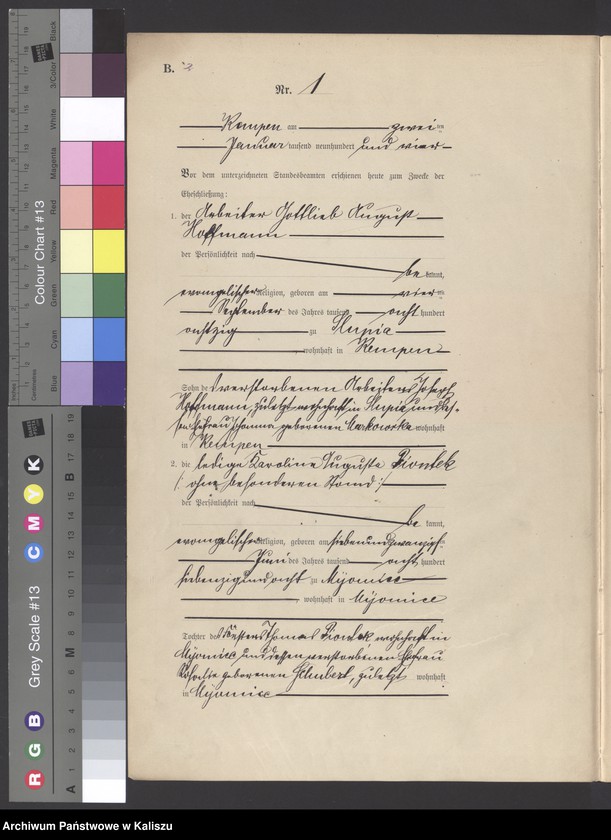 B.
Nr. 1
Kempen am zwei ten
Januar tausend neunhundert und vier
Vor dem unterzeichneten Standesbeamten erschienen heute zum Zwecke der
Eheschließung:
1. der Arbeiter Gottlieb August
Hoffmann
der Persönlichkeit nach
be kannt,
evangelischer Religion, geboren am vier ten
September des Jahres tausend acht hundert
achtzig zu Slupia
wohnhaft in Kempen
Sohn des verstorbenen Arbeiters Joseph
Hoffmann, zuletzt wohnhaft in Slupia und des-
sen Ehefrau Johanna geborenen Markowska wohnhaft
in Kempen
2. die ledige Karoline Auguste Piontek
/: ohne besonderen Stand :/
der Persönlichkeit nach
be kannt,
evangelischer Religion, geboren am siebenundzwanzigsten
Juni des Jahres tausend acht hundert
siebenzig und acht zu Mijomice
wohnhaft in Mijomice
Tochter des Thomas Piontek wohnhaft in
Mijomice und dessen verstorbenen Ehefrau
Rosalie geborenen Schubert, zuletzt wohnhaft
in Mijomice
Colour Chart #13
Blue Cyan Green Yellow Red Magenta White 3/Color Black
Inches
Centimetres
Grey Scale #13
R G B C M Y K
A 1 2 3 4 5 6 M 8 9 10 11 12 13 14 15 B 17 18 19
Archiwum Państwowe w Kaliszu